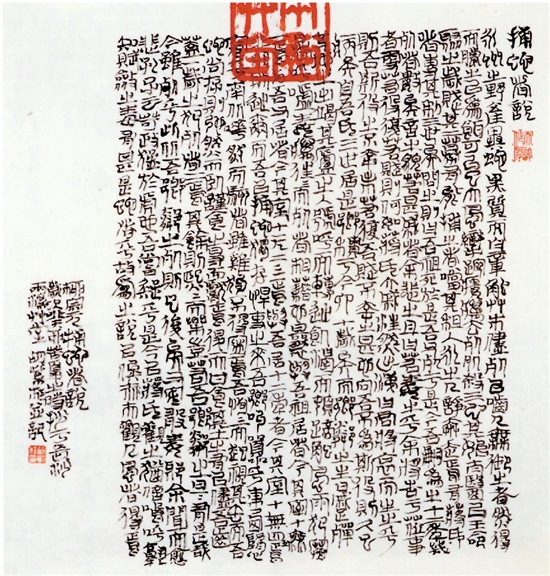 捕蛇者說
永州之野產異蛇黑質而白章觸草木盡死以齧人無禦之者然得
而腊之以為餌可以已大風攣踠瘻癘去死肌殺三蟲其始太醫以王命聚
之歲賦其二募有能捕之者當其租入永之人爭奔走焉有蔣氏
者專其利三世矣問之則曰吾祖死於是吾父死於是今吾嗣為之十二年幾
死者數矣言之貌若甚慼者余悲之且曰若毒之乎余將告于蒞事
者更若役復若賦則何如蔣氏大慼汪然出涕曰君將哀而生之乎
則吾斯役之不幸未若復吾賦不幸之甚也嚮吾不為斯役則久已
病矣自吾氏三世居是鄉積於今六十歲矣而鄉鄰之生日蹙殫
其地之出竭其廬之入號呼而轉徙飢渴而頓踣觸風雨犯寒
暑呼噓毒癘往往而死者相藉也曩與吾祖居者今其室十無
一焉與吾父居者今其室十無二三焉與吾居十二年者今其室十無四五焉
非死則徙爾而吾以捕蛇獨存悍吏之來吾鄉叫囂乎東西隳突
乎南北譁然而駭者雖雞狗不得寧焉吾恂恂而起視其缶而吾
蛇尚存則弛然而臥謹食之時而獻焉退而甘食其土之有以盡吾齒
蓋一歲之犯死者二焉其餘則熙熙而樂豈若吾鄉鄰之旦旦有是哉
今雖死乎此比吾鄉鄰之死則已後矣又安敢毒耶余聞而愈
悲孔子曰苛政猛於虎也吾嘗疑乎是今以蔣氏觀之猶信嗚呼孰
知賦斂之毒有甚是蛇者乎故為之說以俟夫觀人風者得焉
柳宗元捕蛇者說